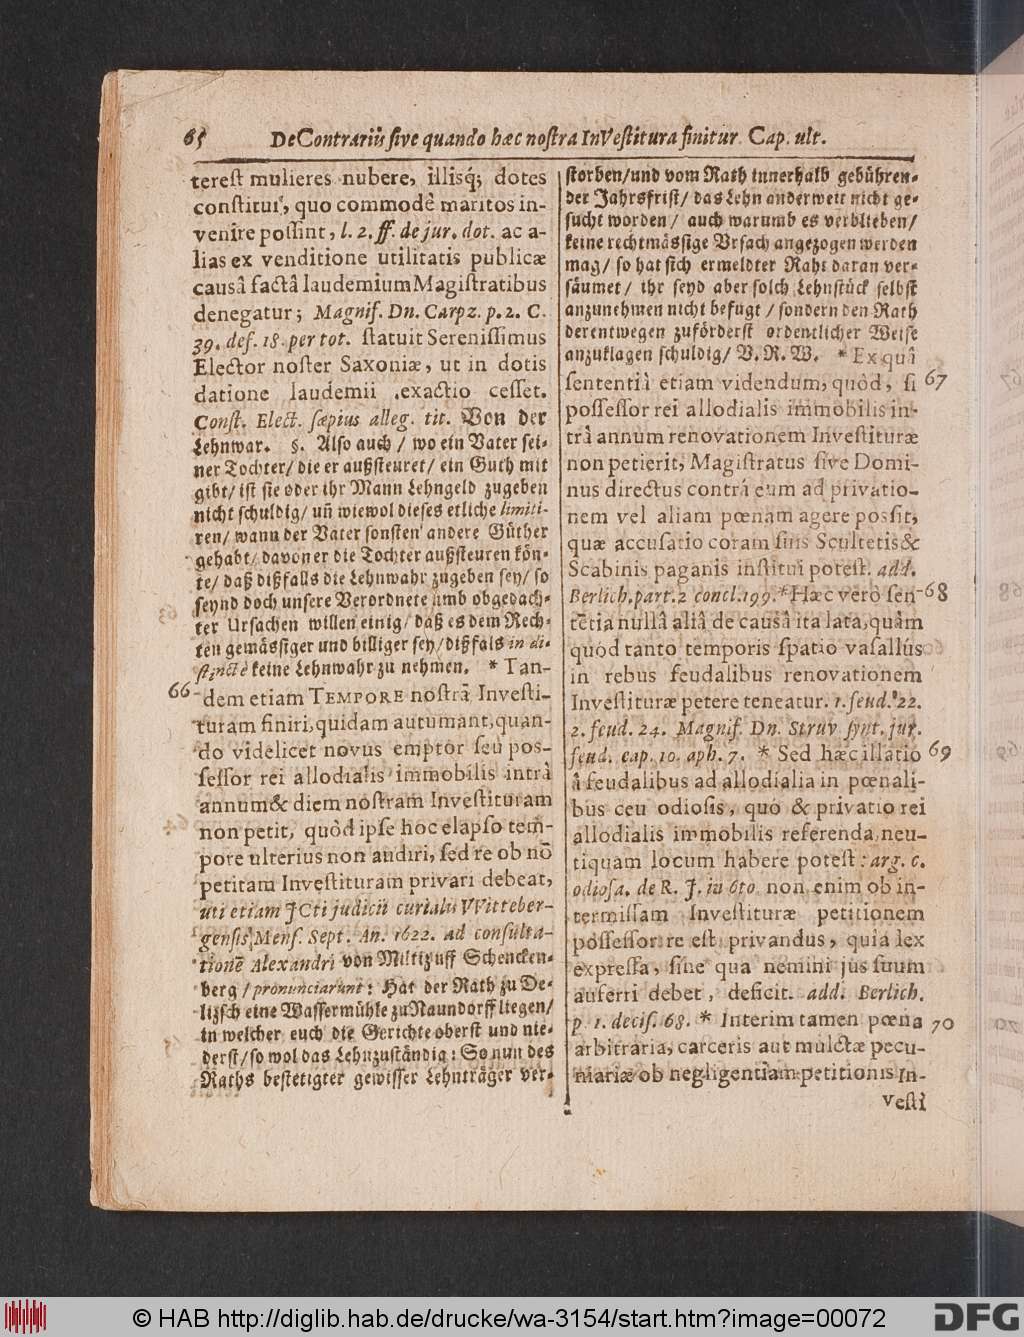 65 De Contrariis sive quando hæc nostra InVestitura finitur. Cap. ult.
terest mulieres nubere, illisq́; dotes
constitui, quo commodè maritos in-
venire possint, l. 2. ff. de jur. dot. ac a-
lias ex venditione utilitatis publicæ
causâ factâ laudemium Magistratibus
denegatur; Magnif. Dn. Carpz. p. 2. C.
39. def. 18. per tot. statuit Serenissimus
Elector noster Saxoniæ, ut in dotis
datione laudemii exactio cesset.
Const. Elect. sæpius alleg. tit. Von der
Lehnwar. §. Also auch / wo ein Vater sei-
ner Tochter / die er außsteuret / ein Guth mit
gibt / ist sie oder ihr Mann Lehngeld zugeben
nicht schuldig / uñ wiewol dieses etliche limiti-
ren / wann der Vater sonsten andere Güther
gehabt / davon er die Tochter außsteuren kön-
te / daß dißfalls die Lehnwahr zugeben sey / so
seynd doch unsere Verordnete umb obgedach-
ter Ursachen willen einig / daß es dem Rech-
ten gemässiger und billiger sey / dißfals in di-
stinctè keine Lehnwahr zu nehmen. * Tan-
66 dem etiam TEMPORE nostrã Investi-
turam finiri, quidam autumant, quan-
do videlicet novus emptor seu pos-
sessor rei allodialis immobilis intrà
annum & diem nostram Investituram
non petit, quòd ipse hoc elapso tem-
pore ulterius non audiri, sed re ob nõ
petitam Investituram privari debeat,
uti etiam JCti judicii curialis VVitteber-
gensis Mens. Sept. An. 1622. ad consulta-
tionẽ Alexandri von Miltiz uff Schencken-
berg / pronunciarunt: Hat der Rath zu De-
lizsch eine Wassermühle zu Naundorff liegen /
in welcher euch die Gerichte oberst und nie-
derst / so wol das Lehn zuständig: So nun des
Raths bestetigter gewisser Lehnträger ver-
storben / und vom Rath innerhalb gebühren-
der Jahrsfrist / das Lehn anderweit nicht ge-
sucht worden / auch warumb es verblieben /
keine rechtmässige Ursach angezogen werden
mag / so hat sich ermeldter Raht daran ver-
säumet / ihr seyd aber solch Lehnstück selbst
anzunehmen nicht befugt / sondern den Rath
derentwegen zuförderst ordentlicher Weise
anzuklagen schuldig / V. R. W. * Ex quâ
sententiâ etiam videndum, quòd, si 67
possessor rei allodialis immobilis in-
trà annum renovationem Investituræ
non petierit, Magistratus sive Domi-
nus directus contrà eum ad privatio-
nem vel aliam pœnam agere possit,
quæ accusatio coram suis Scultetis &
Scabinis paganis institui potest. add.
Berlich. part. 2 concl. 199. * Hæc verò sen- 68
tẽtia nullâ aliâ de causâ ita lata, quàm
quòd tanto temporis spatio vasallus
in rebus feudalibus renovationem
Investituræ petere teneatur. 1. feud. 22.
2. feud. 24. Magnif. Dn. Struv synt. jur.
feud. cap. 10. aph. 7. * Sed hæc illatio 69
â feudalibus ad allodialia in pœnali-
bus ceu odiosis, quò & privatio rei
allodialis immobilis referenda, neu-
tiquam locum habere potest: arg. c.
odiosa. de R. J. in 6to. non enim ob in-
termissam Investituræ petitionem
possessor re est privandus, quia lex
expressa, sine qua nemini jus suum
auferri debet, deficit. add. Berlich.
p. 1. decis. 68. * Interim tamen pœna 70
arbitraria, carceris aut mulctæ pecu-
niariæ ob negligentiam petitionis In-
vesti
© HAB http://diglib.hab.de/drucke/wa-3154/start.htm?image=00072
DFG